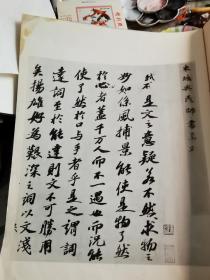 東坡與民師書
不是文之意疑若不然求物之
妙如係風捕景能使是物了然
於心者蓋千萬人而不一遇也而況能
使了然於口與手者乎是之謂詞
達詞至於能達則文不可勝用
矣揚雄好為艱深之詞以文淺